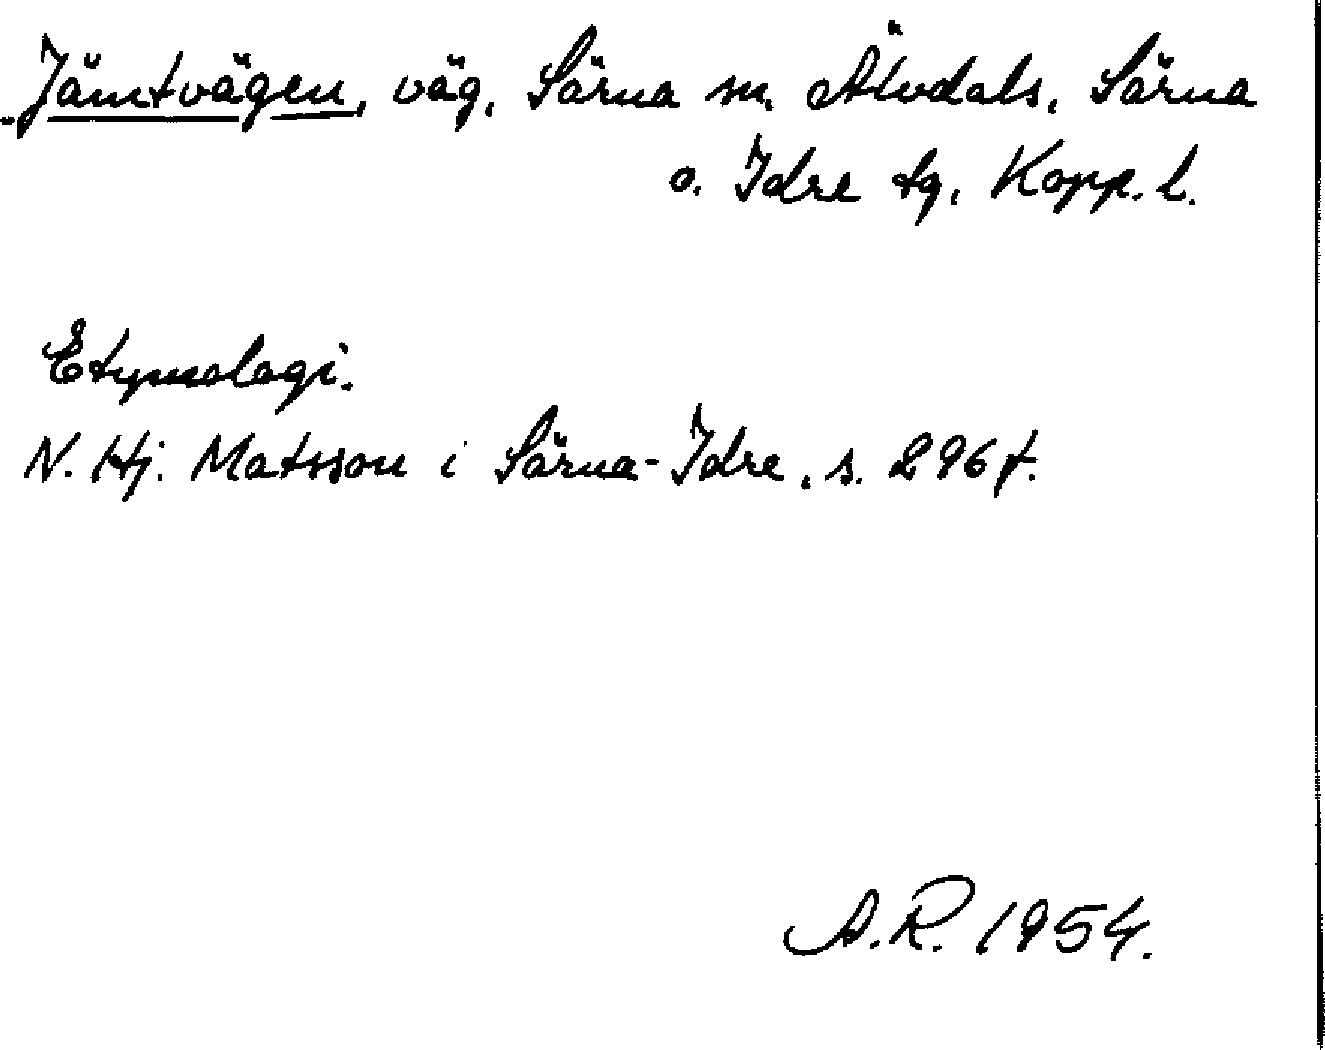 Jämtvägen, väg, Särna sn, Älvdals, Särna
o. Idre tg, Kopp. l.
Etymologi.
N. Hj. Matsson i Särna-Idre, s. 296 f.
A.R. 1954.